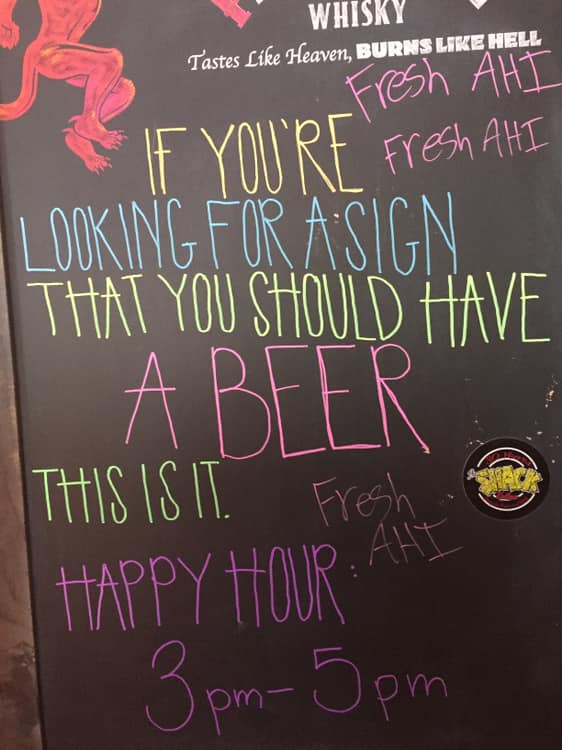 WHISKY
Tastes Like Heaven, BURNS LIKE HELL
Fresh AHI
Fresh AHI
IF YOU'RE
LOOKING FOR A SIGN
THAT YOU SHOULD HAVE
A BEER
THIS IS IT.
Fresh
AHI
SHACK
HAPPY HOUR:
3pm-5pm